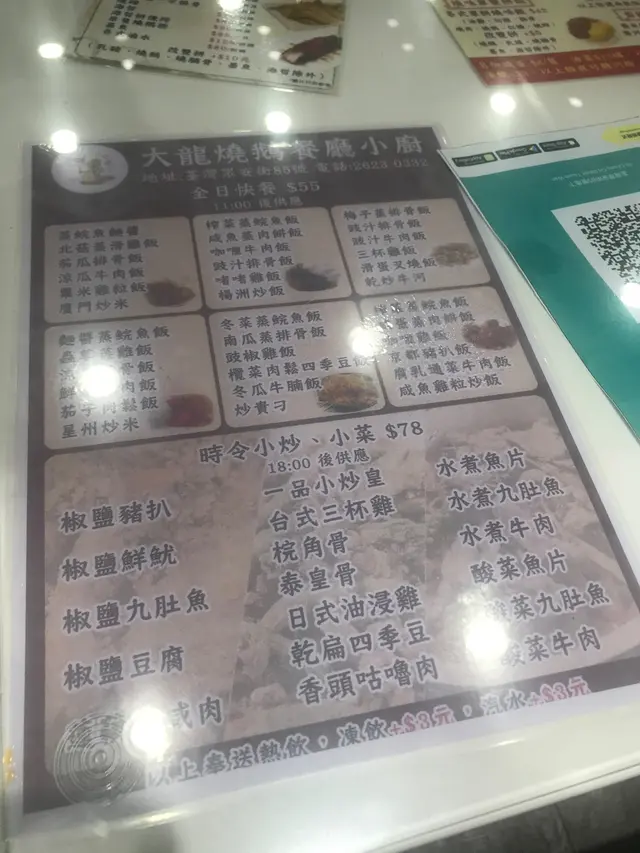 大龍燒鵝餐廳小廚
地址:荃灣眾安街85號 電話:2623 0332
全日快餐 $55
11:00 後供應
蒸鯇魚
北菇蒸滑雞飯
排骨飯
涼瓜牛肉飯
粟米雞粒飯
廈門炒米
榨菜蒸鯇魚飯
咸魚蒸肉餅飯
咖喱牛肉飯
豉汁排骨飯
啫啫雞飯
楊洲炒飯
梅子蒸排骨飯
豉汁排骨飯
豉汁牛肉飯
三杯雞飯
滑蛋叉燒飯
乾炒牛河
麵醬蒸鯇魚飯
雞飯
骨飯
肉飯
茄子肉鬆飯
星州炒米
冬菜蒸鯇魚飯
南瓜蒸排骨飯
豉椒雞飯
欖菜肉鬆四季豆飯
冬瓜牛腩飯
炒貴刁
蒸鯇魚飯
蒸肉餅飯
咖喱雞飯
京都豬扒飯
腐乳通菜牛肉飯
咸魚雞粒炒飯
時令小炒、小菜 $78
18:00 後供應
椒鹽豬扒
椒鹽鮮魷
椒鹽九肚魚
椒鹽豆腐
式肉
一品小炒皇
台式三杯雞
梡角骨
泰皇骨
日式油浸雞
乾扁四季豆
香頭咕嚕肉
水煮魚片
水煮九肚魚
水煮牛肉
酸菜魚片
酸菜九肚魚
酸菜牛肉
以上奉送熱飲，凍飲+$3元，汽水+$3元